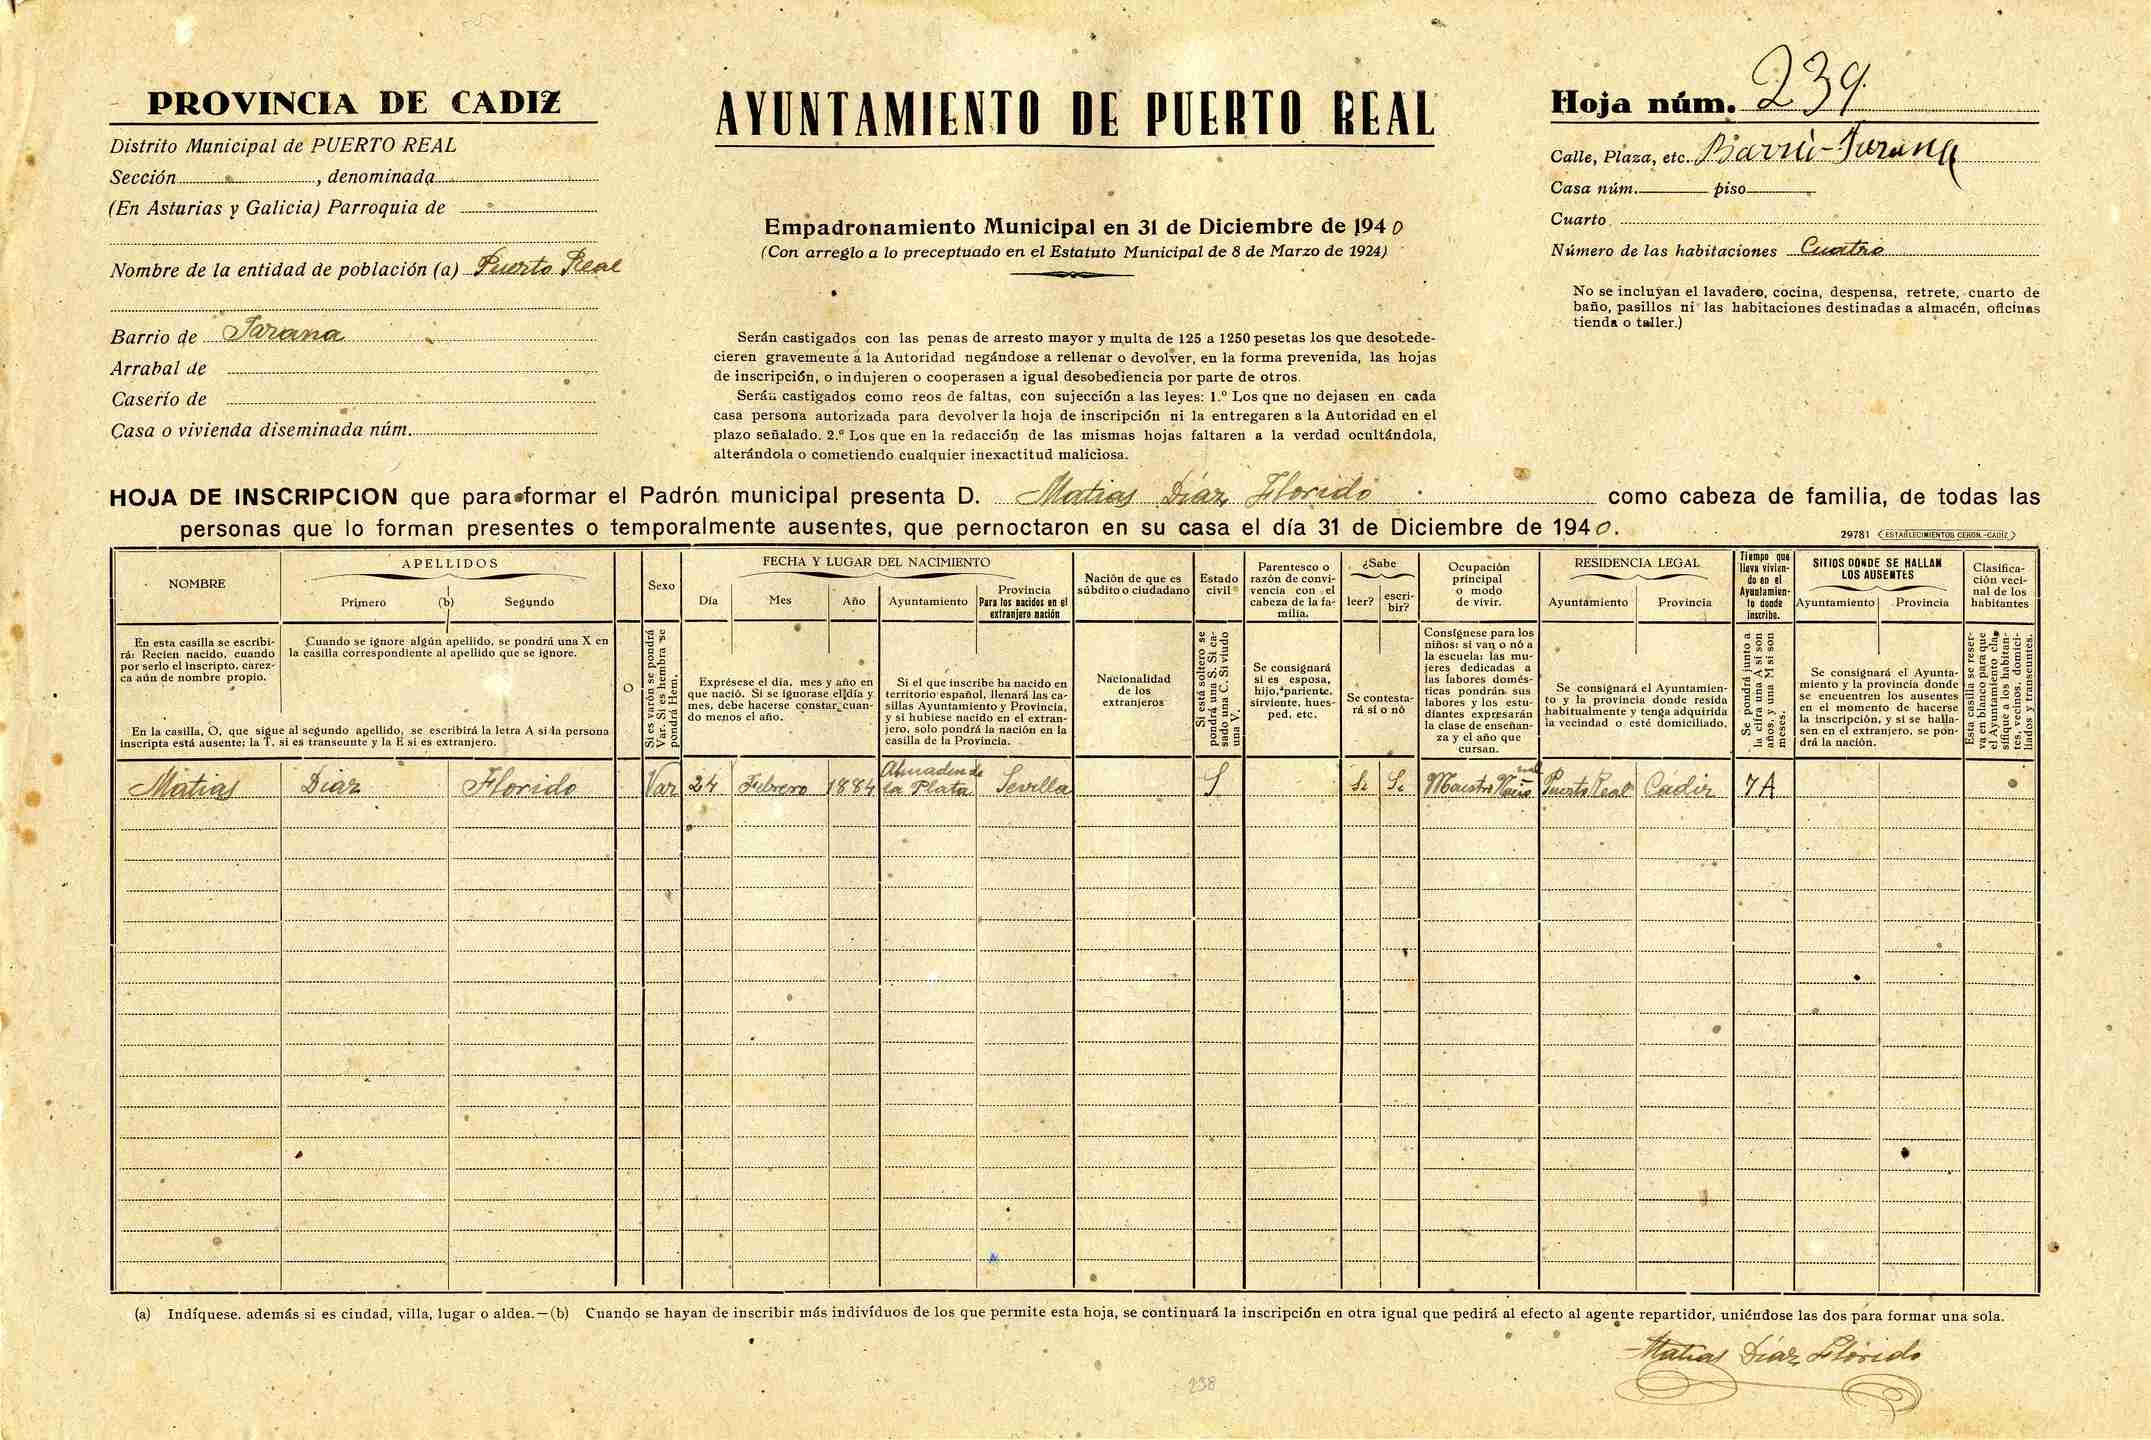 PROVINCIA DE CADIZ
Distrito Municipal de PUERTO REAL
Sección, denominada
(En Asturias y Galicia) Parroquia de
Nombre de la entidad de población (a) Puerto Real
Barrio de Jarana
Arrabal de
Caserío de
Casa o vivienda diseminada núm.
AYUNTAMIENTO DE PUERTO REAL
Empadronamiento Municipal en 31 de Diciembre de 1940
(Con arreglo a lo preceptuado en el Estatuto Municipal de 8 de Marzo de 1924)
Serán castigados con las penas de arresto mayor y multa de 125 a 1250 pesetas los que desobede-
cieren gravemente á la Autoridad negándose a rellenar o devolver, en la forma prevenida, las hojas
de inscripción, o indujeren o cooperasen a igual desobediencia por parte de otros.
Serán castigados como reos de faltas, con sujección a las leyes: 1.º Los que no dejasen en cada
casa persona autorizada para devolver la hoja de inscripción ni la entregaren a la Autoridad en el
plazo señalado. 2.º Los que en la redacción de las mismas hojas faltaren a la verdad ocultándola,
alterándola o cometiendo cualquier inexactitud maliciosa.
Hoja núm. 239
Calle, Plaza, etc. Barrio-Jarana
Casa núm. piso
Cuarto
Número de las habitaciones Cuatro
No se incluyan el lavadero, cocina, despensa, retrete, cuarto de
baño, pasillos ni las habitaciones destinadas a almacén, oficinas
tienda o taller.)
HOJA DE INSCRIPCION que para formar el Padrón municipal presenta D. Matias Díaz Florido como cabeza de familia, de todas las
personas que lo forman presentes o temporalmente ausentes, que pernoctaron en su casa el día 31 de Diciembre de 1940.
29781 ESTABLECIMIENTOS CERON.-CADIZ
NOMBRE
APELLIDOS
Primero (b) Segundo
Sexo
FECHA Y LUGAR DEL NACIMIENTO
Día Mes Año Ayuntamiento
Provincia
Para los nacidos en el
extranjero nación
Nación de que es
súbdito o ciudadano
Estado
civil
Parentesco o
razón de convi-
vencia con el
cabeza de la fa-
milia.
¿Sabe
leer?
escri-
bir?
Ocupación
principal
o modo
de vivir.
RESIDENCIA LEGAL
Ayuntamiento Provincia
Tiempo que
lleva vivien-
do en el
Ayuntamien-
to donde
inscribe.
SITIOS DONDE SE HALLAN
LOS AUSENTES
Ayuntamiento Provincia
Clasifica-
ción veci-
nal de los
habitantes
En esta casilla se escribi-
rá: Recien nacido, cuando
por serlo el inscripto, carez-
ca aún de nombre propio.
Cuando se ignore algún apellido, se pondrá una X en
la casilla correspondiente al apellido que se ignore.
En la casilla, O, que sigue al segundo apellido, se escribirá la letra A si la persona
inscripta está ausente; la T, si es transeunte y la E si es extranjero.
O
Si es varón se pondrá
Var. Si es hembra se
pondrá Hem.
Exprésese el día, mes y año en
que nació. Si se ignorase el día y
mes, debe hacerse constar cuan-
do menos el año.
Si el que inscribe ha nacido en
territorio español, llenará las ca-
sillas Ayuntamiento y Provincia,
y si hubiese nacido en el extran-
jero, solo pondrá la nación en la
casilla de la Provincia.
Nacionalidad
de los
extranjeros
Si está soltero se
pondrá una S. Si ca-
sado una C. Si viudo
una V.
Se consignará
si es esposa,
hijo, pariente,
sirviente, hues-
ped, etc.
Se contesta-
rá sí o nó
Consígnese para los
niños: si van o nó a
la escuela: las mu-
jeres dedicadas a
las labores domés-
ticas pondrán sus
labores y los estu-
diantes expresarán
la clase de enseñan-
za y el año que
cursan.
Se consignará el Ayuntamien-
to y la provincia donde resida
habitualmente y tenga adquirida
la vecindad o esté domiciliado.
Se pondrá junto a
la cifra una A si son
años, y una M si son
meses.
Se consignará el Ayunta-
miento y la provincia donde
se encuentren los ausentes
en el momento de hacerse
la inscripción, y si se halla-
sen en el extranjero, se pon-
drá la nación.
Esta casilla se reser-
va en blanco para que
el Ayuntamiento cla-
sifique a los habitan-
tes, vecinos, domici-
liados y transeuntes.
Matias Díaz Florido Var 24 Febrero 1884 Almaden de la Plata Sevilla S Si Si Maestro Nacional Puerto Real Cádiz 7 A
(a) Indíquese. además si es ciudad, villa, lugar o aldea.—(b) Cuando se hayan de inscribir más indivíduos de los que permite esta hoja, se continuará la inscripción en otra igual que pedirá al efecto al agente repartidor, uniéndose las dos para formar una sola.
Matias Díaz Florido
238